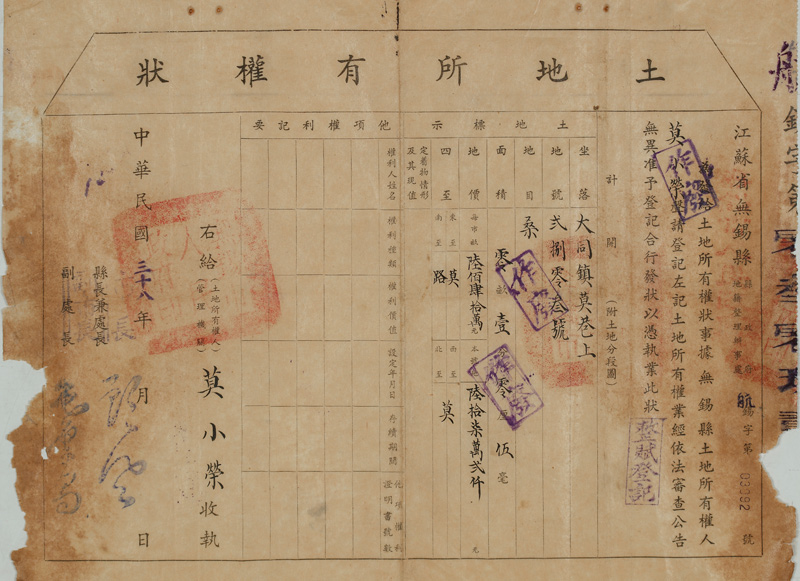 土地所有權狀
江蘇省無錫縣縣政府地籍整理辦事處
航錫字第03092號
發給土地所有權狀事據無錫縣土地所有權人
莫小榮聲請登記左記土地所有權業經依法審查公告
無異准予登記合行發狀以憑執業此狀
計開（附土地分段圖）
土地標示
坐落 大同鎮莫巷上
地號 貳捌零叁號
地目 桑
面積 零畝壹分零釐伍毫
地價 每市畝 陸佰肆拾萬元 本號 陸拾柒萬貳仟元
四至 東至 莫 南至 莫
西至 路 北至
定着物情形及其現值
他項權利記要
權利人姓名
權利種類
權利價值
設定年月日
存續期間
他項權利證明書號數
右給（土地所有權人）（管理機關）莫小榮收執
縣長兼處長
副處長
中華民國三十八年 月 日
作廢
作廢
作廢
登記